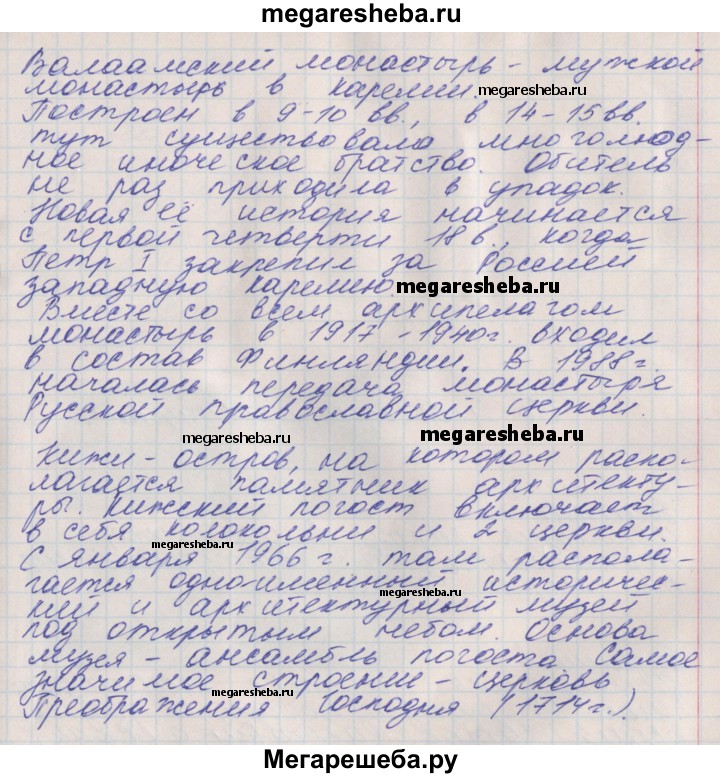 megaresheba.ru
Валаамский монастырь - мужской
монастырь в Карелии.
megaresheba.ru
Построен в 9-10 вв., в 14-15 вв.
тут существовало многолюд-
ное иноческое братство. Обитель
не раз приходила в упадок.
Новая её история начинается
с первой четверти 18 в., когда
Петр I закрепил за Россией
западную Карелию.
megaresheba.ru
Вместе со всем архипелагом
монастырь в 1917-1940г. входил
в состав Финляндии. В 1988г.
началась передача монастыря
Русской православной церкви.
megaresheba.ru
megaresheba.ru
Кижи - остров, на котором распо-
лагается памятник архитекту-
ры. Кижский погост включает
в себя колокольни и 2 церкви.
megaresheba.ru
С января 1966 г. там распола-
гается одноименный историчес-
megaresheba.ru
кий и архитектурный музей
под открытым небом. Основа
музея - ансамбль погоста. Самое
значимое строении - церковь
megaresheba.ru
Преображения Господня (1714г.).
Мегарешеба.ру